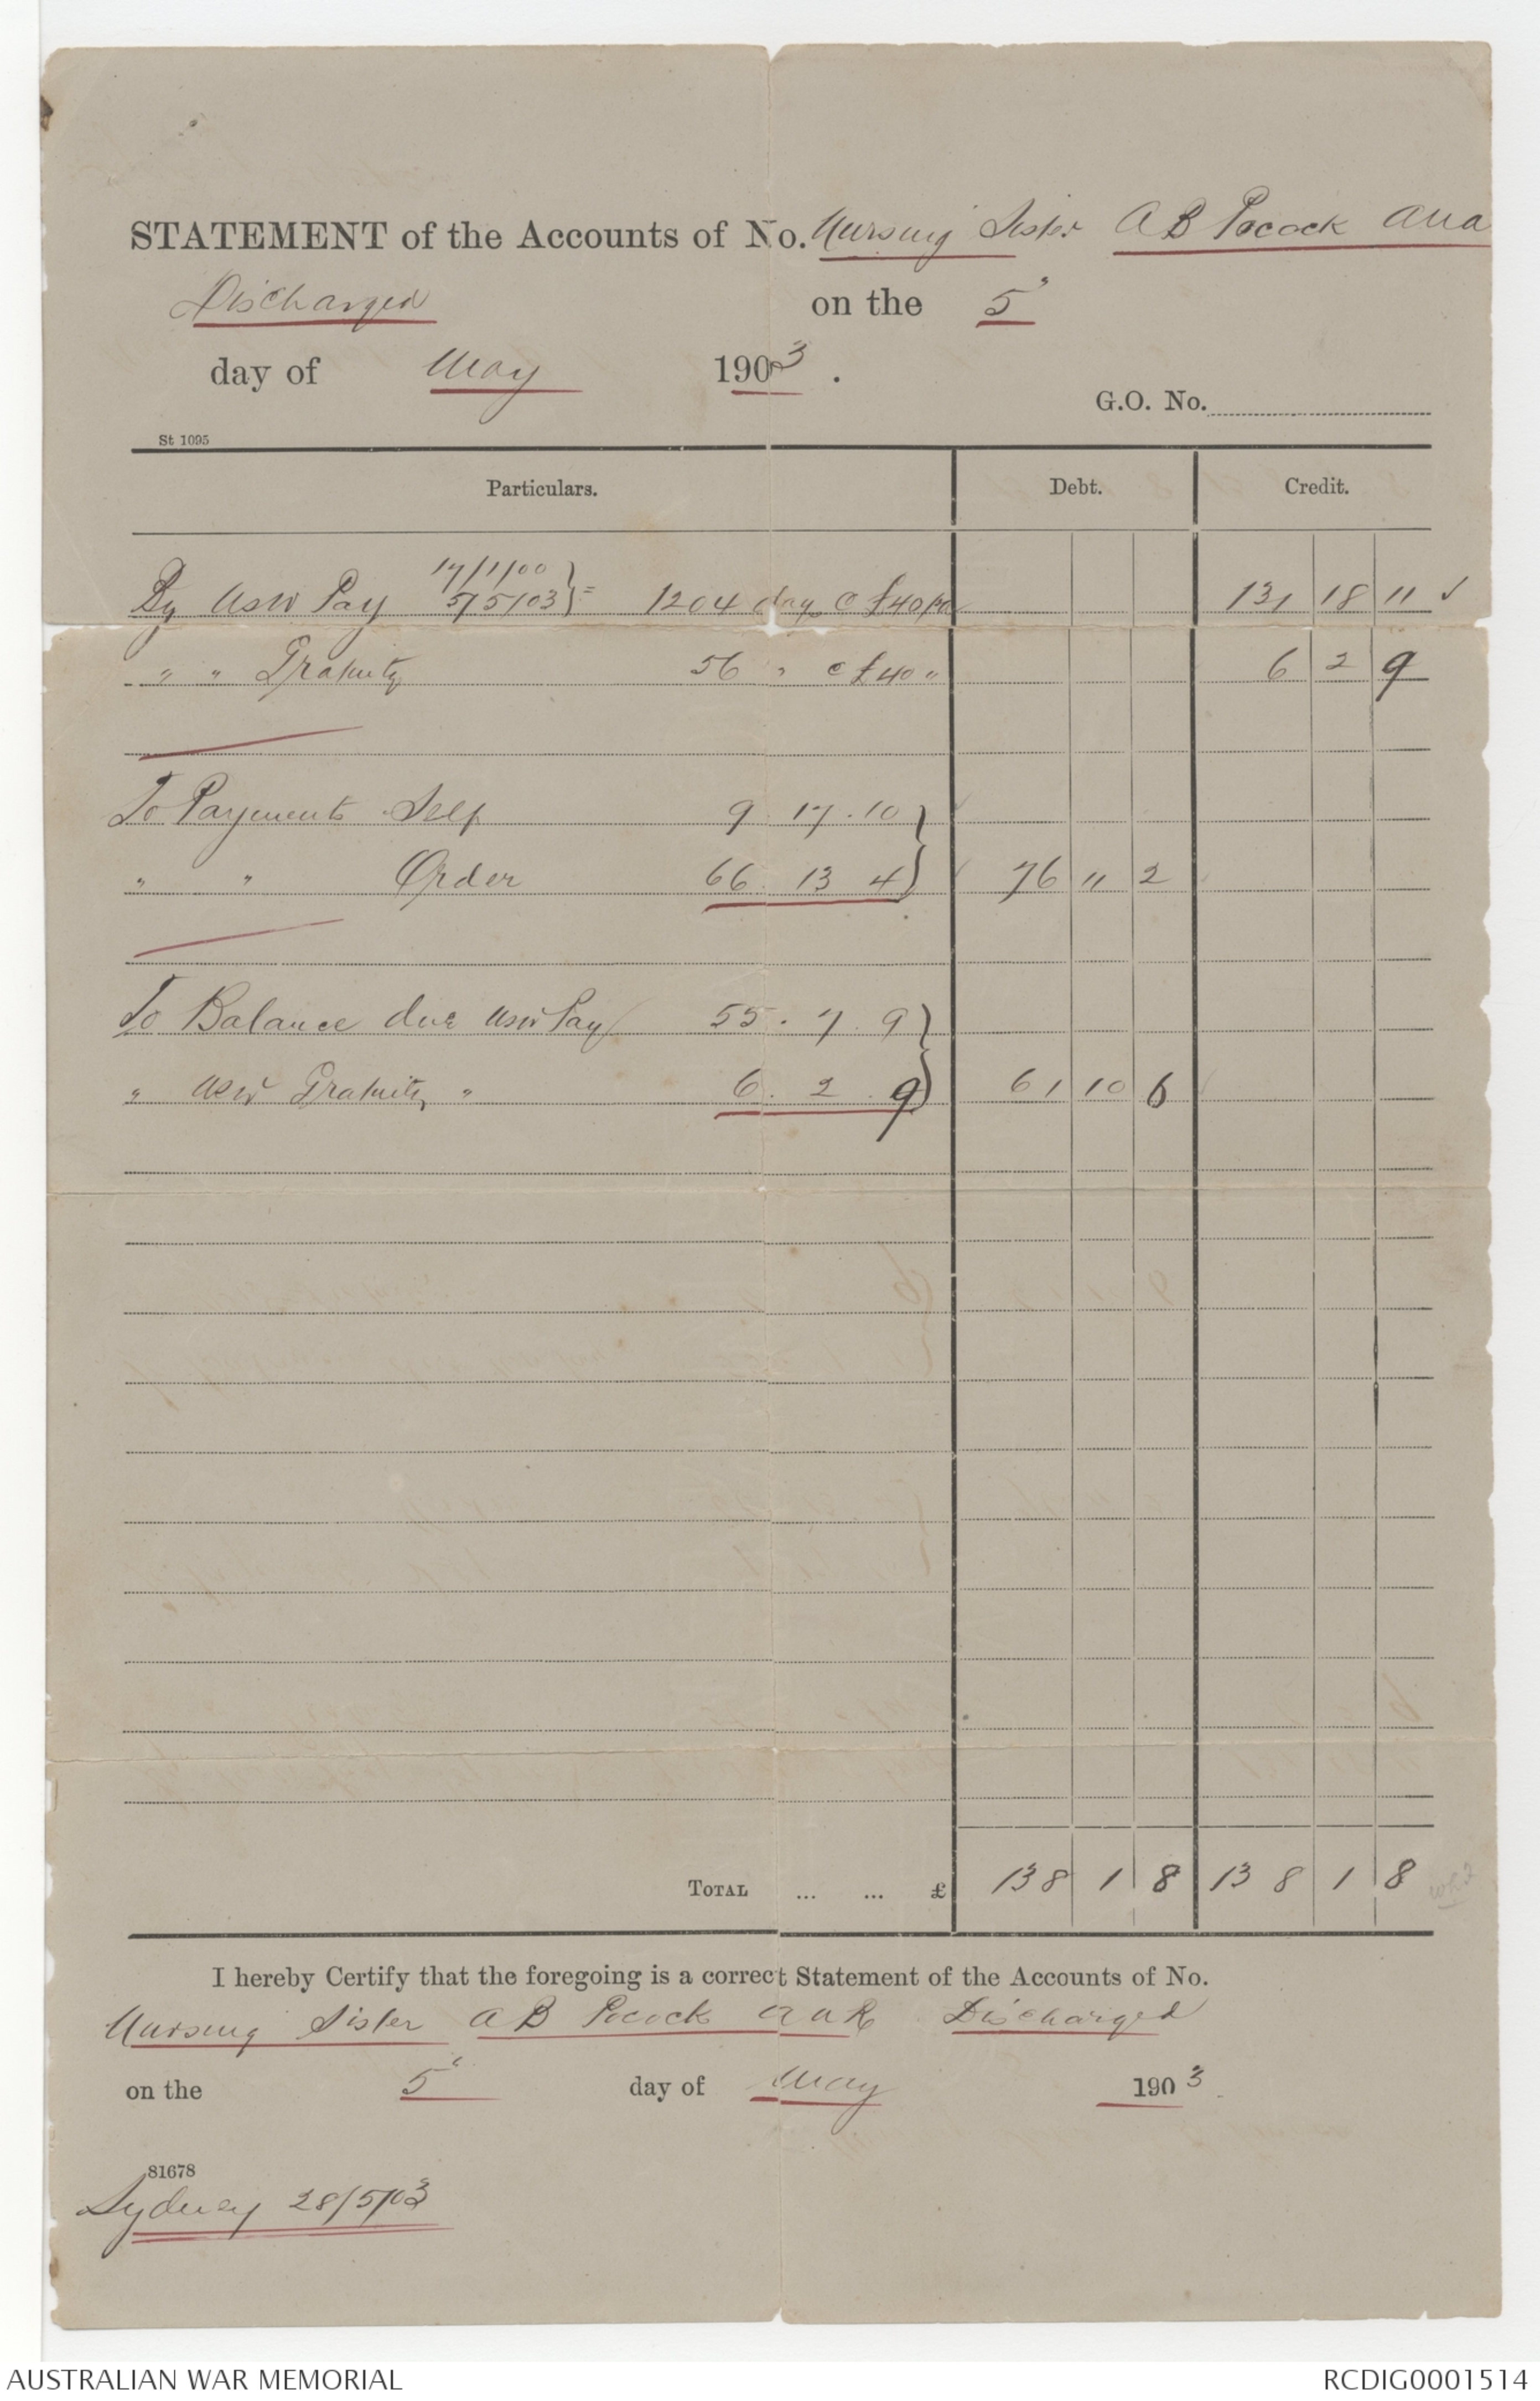 STATEMENT of the Accounts of No. Nursing Sister A B Pocock
Discharged on the 5"
day of May 1903.
G.O. No.
St 1095
Particulars. Debt. Credit.
17/1/00
By NSW Pay 5/5/03 } = 1204 days @ £40 pa 131 18 11 ✓
" " Gratuity 56 " @ £40 " 6 2 9
To Payments Self 9 . 17 . 10 }
" " Order 66 . 13 4 } 76 11 2
To Balance due NSW Pay 55 . 7 . 9 }
" NSW Gratuity " 6 . 2 . 9 } 61 10 6
TOTAL ... ... £ 138 1 8 138 1 8
I hereby Certify that the foregoing is a correct Statement of the Accounts of No.
Nursing Sister A B Pocock Discharged
on the 5" day of May 1903
81678
Sydney 28/5/03
AUSTRALIAN WAR MEMORIAL RCDIG0001514